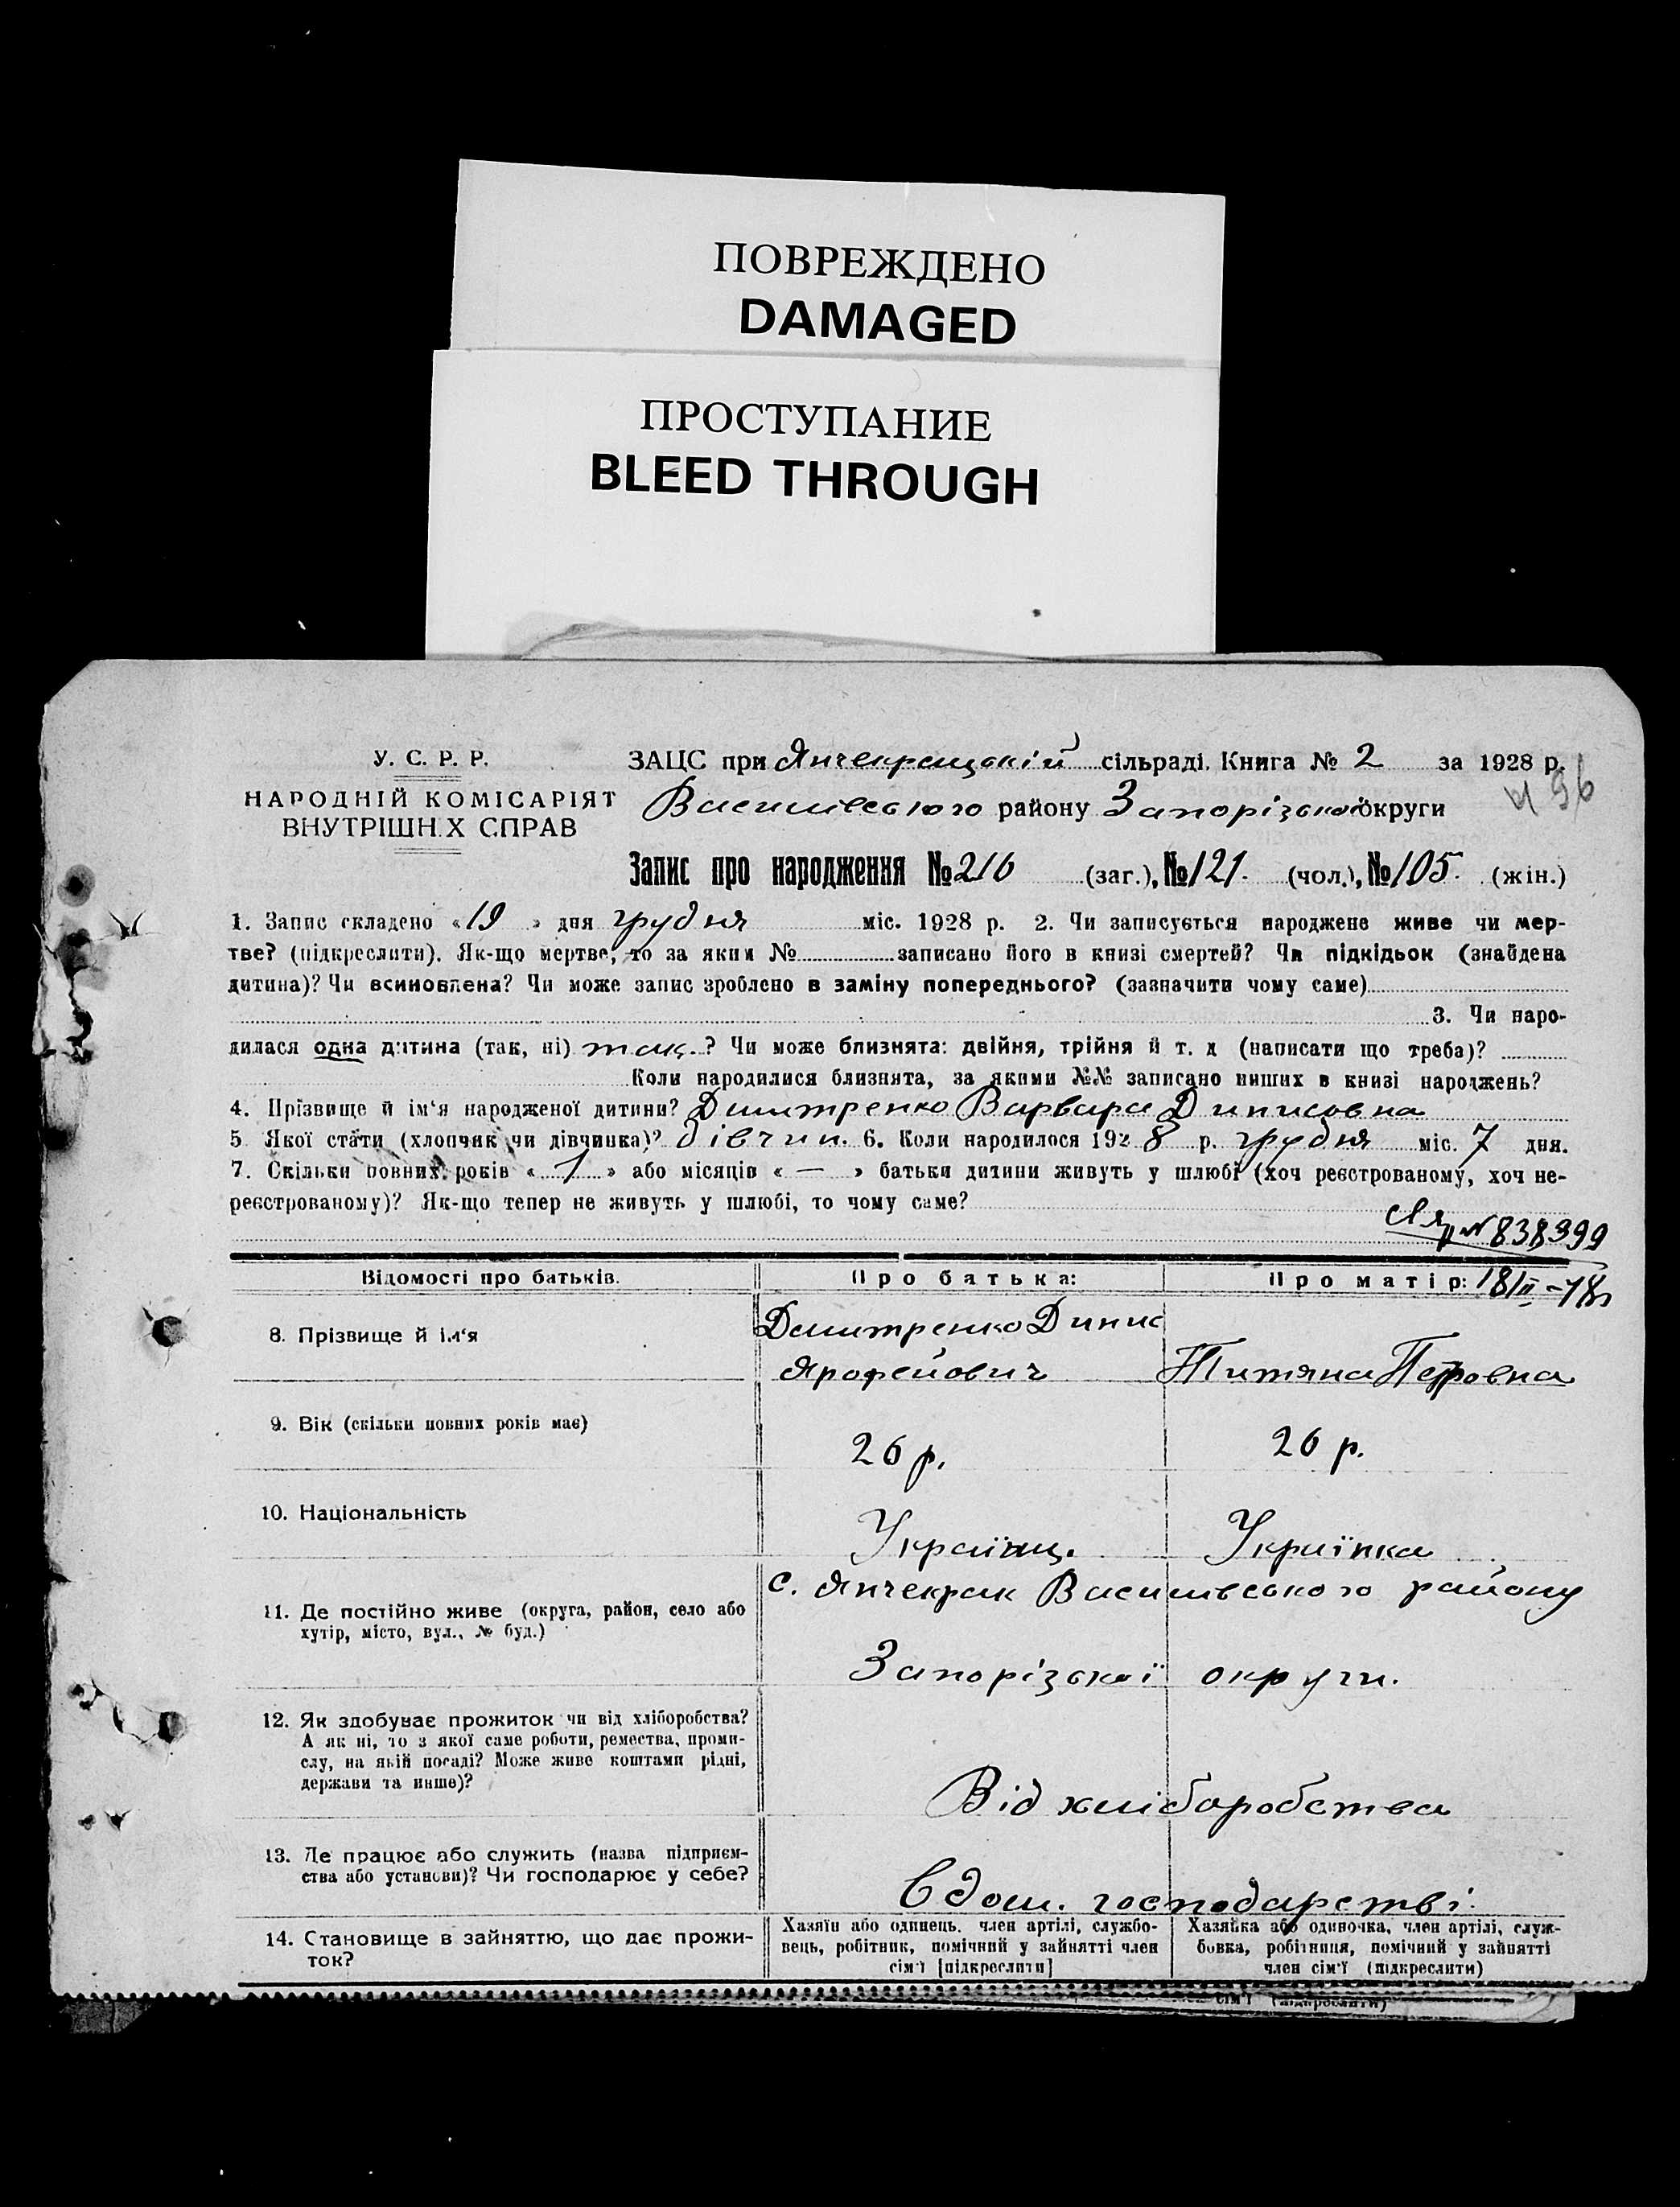 ПОВРЕЖДЕНО
DAMAGED
ПРОСТУПАНИЕ
BLEED THROUGH
У. С. Р. Р.
НАРОДНІЙ КОМІСАРІЯТ
ВНУТРІШН.Х СПРАВ
ЗАЦС при Янчекрацькій сільраді. Книга № 2 за 1928 р.
Василівського району Запорізької округи
Запис про народження № 216 (заг.), № 121. (чол.), № 105. (жін.)
1. Запис складено «19» дня грудня міс. 1928 р. 2. Чи записується народжене живе чи мер-
тве? (підкреслити). Як-що мертве, то за яким № записано його в книзі смертей? Чи підкідьок (знайдена
дитина)? Чи всиновлена? Чи може запис зроблено в заміну попереднього? (зазначити чому саме)
3. Чи наро-
дилася одна дитина (так, ні) так.? Чи може близнята: двійня, трійня й т. д (написати що треба)?
Коли народилися близнята, за якими №№ записано инших в книзі народжень?
4. Прізвище й ім‘я народженої дитини? Дмитренко Варвара Динисовна
5 Якої стати (хлопчик чи дівчинка)? дівчин. 6. Коли народилося 1928 р. грудня міс. 7 дня.
7. Скільки повних років «1» або місяців «—» батьки дитини живуть у шлюбі (хоч реєстрованому, хоч не-
реєстрованому)? Як-що тепер не живуть у шлюбі, то чому саме?
№ 838399
Відомості про батьків. Про батька: Про матір:
8. Прізвище й ім‘я Дмитренко Динис
Ярофейович Титяна Петровна
9. Вік (скільки повних років має) 26 р. 26 р.
10. Національність Українц. Українка
11. Де постійно живе (округа, район, село або
хутір, місто, вул., № буд.)
с. Янчекрак Василівського району
Запорізької округи.
12. Як здобуває прожиток чи від хліборобства?
А як ні, то з якої саме роботи, ремества, проми-
слу, на якій посаді? Може живе коштами рідні,
держави та инше)?
Від хліборобства
13. Де працює або служить (назва підприєм-
ства або установи)? Чи господарює у себе?
В дом. господарстві.
14. Становище в зайняттю, що дає прожи-
ток?
Хазяїн або одинець, член артілі, службо-
вець, робітник, помічний у зайнятті член
сім‘ї [підкреслити]
Хазяйка або одиночка, член артілі, служ-
бовка, робітниця, помічний у зайнятті
член сім‘ї (підкреслити)
сім‘ї (підкреслити)